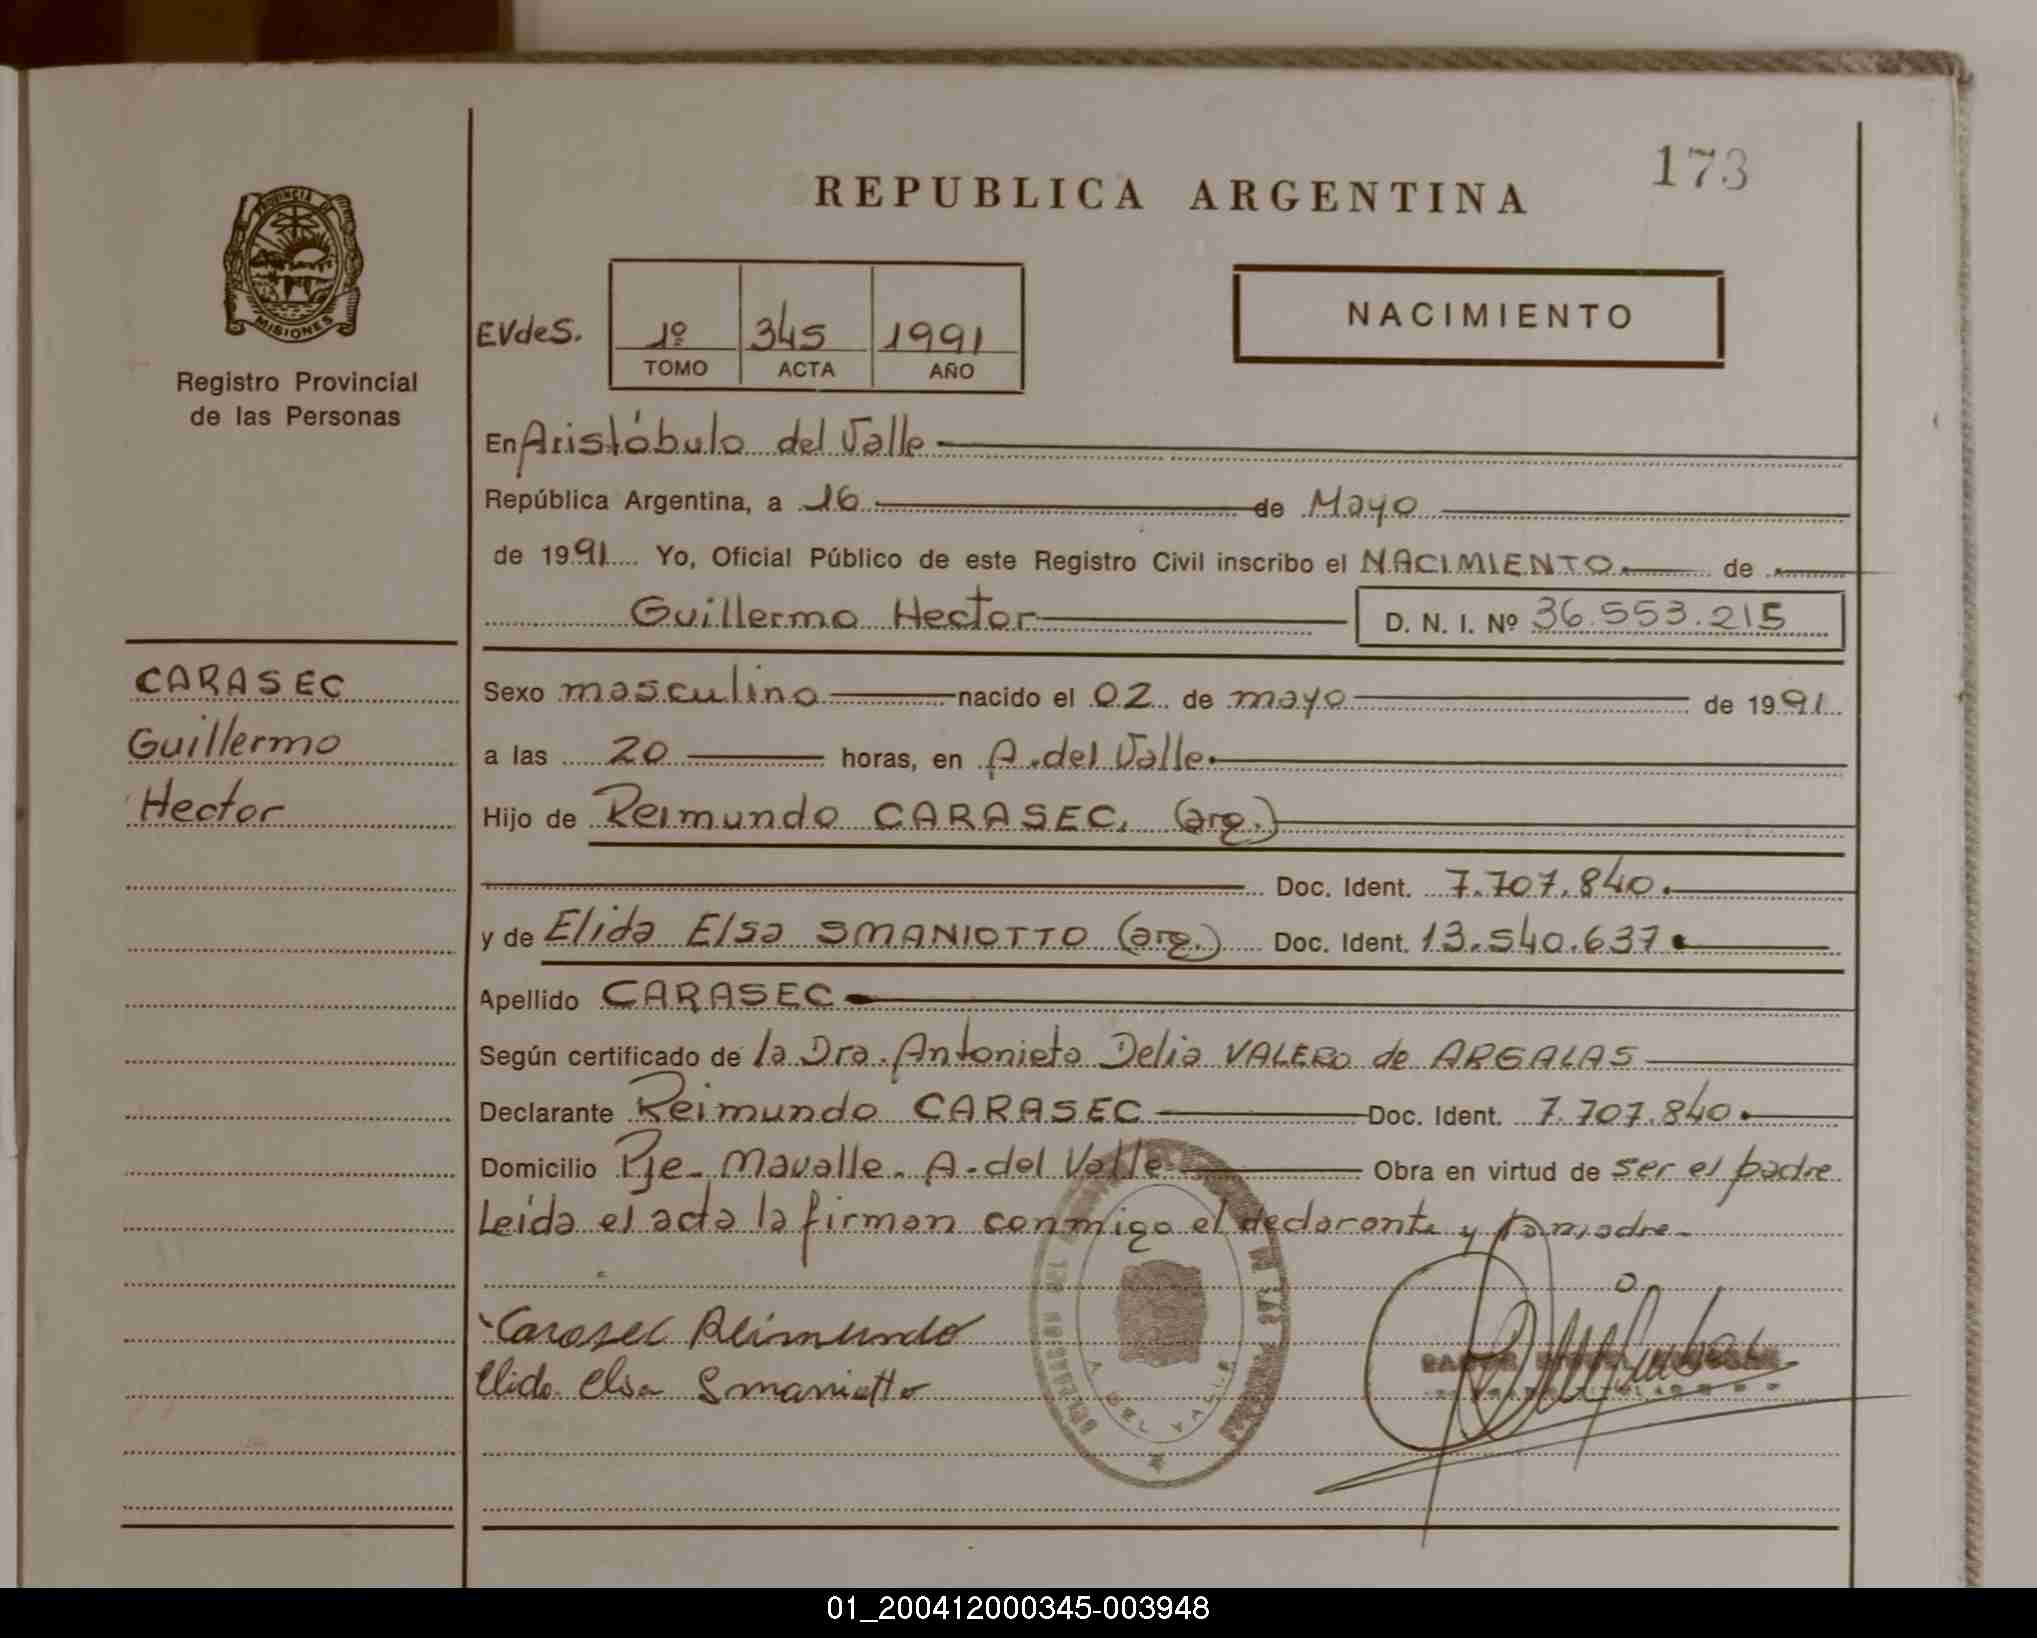 173
REPUBLICA ARGENTINA
PROVINCIA DE
MISIONES
Registro Provincial
de las Personas
EVdeS.
1º 345 1991
TOMO ACTA AÑO
NACIMIENTO
En Aristóbulo del Valle
República Argentina, a 16 de Mayo
de 1991 Yo, Oficial Público de este Registro Civil inscribo el NACIMIENTO de
Guillermo Hector D. N. I. Nº 36.553.215
CARASEC
Guillermo
Hector
Sexo masculino nacido el 02 de mayo de 1991
a las 20 horas, en A. del Valle
Hijo de Reimundo CARASEC. (arg.)
Doc. Ident. 7.707.840.
y de Elida Elsa SMANIOTTO (arg.) Doc. Ident. 13.540.637
Apellido CARASEC
Según certificado de la Dra. Antonieta Delia VALERO de ARGALAS
Declarante Reimundo CARASEC Doc. Ident. 7.707.840.
Domicilio Pje. Mavalle. A. del Valle Obra en virtud de ser el padre
Leída el acta la firman conmigo el declarante y la madre.
Carasec Reimundo
Elida Elsa Smaniotto
A. DEL VALLE
01_200412000345-003948